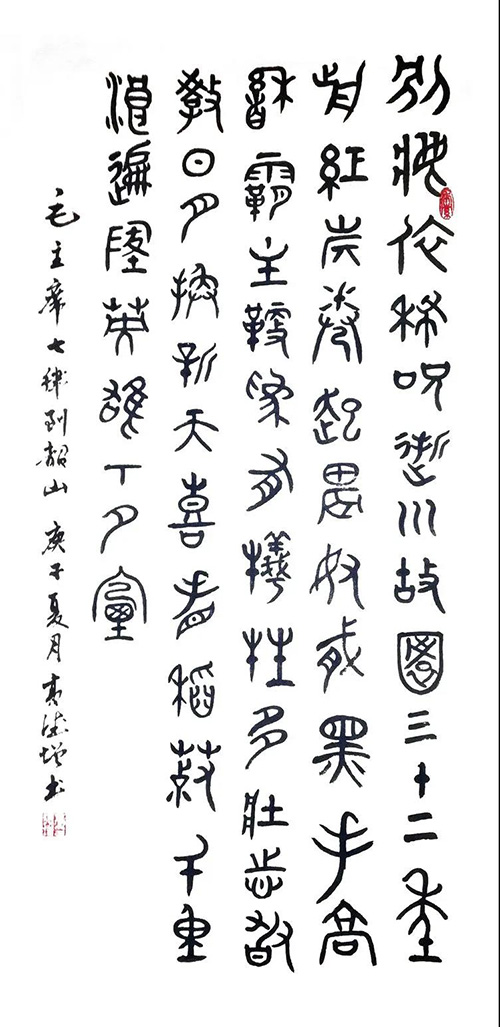 别夢依稀呪逝川故園三十二年
前紅旗卷起農奴戟黑手高
縣霸主鞭爲有犧牲多壯志敢
教日月換新天喜看稻菽千重
浪遍地英雄下夕煙
毛主席七律到韶山 庚子夏月 书